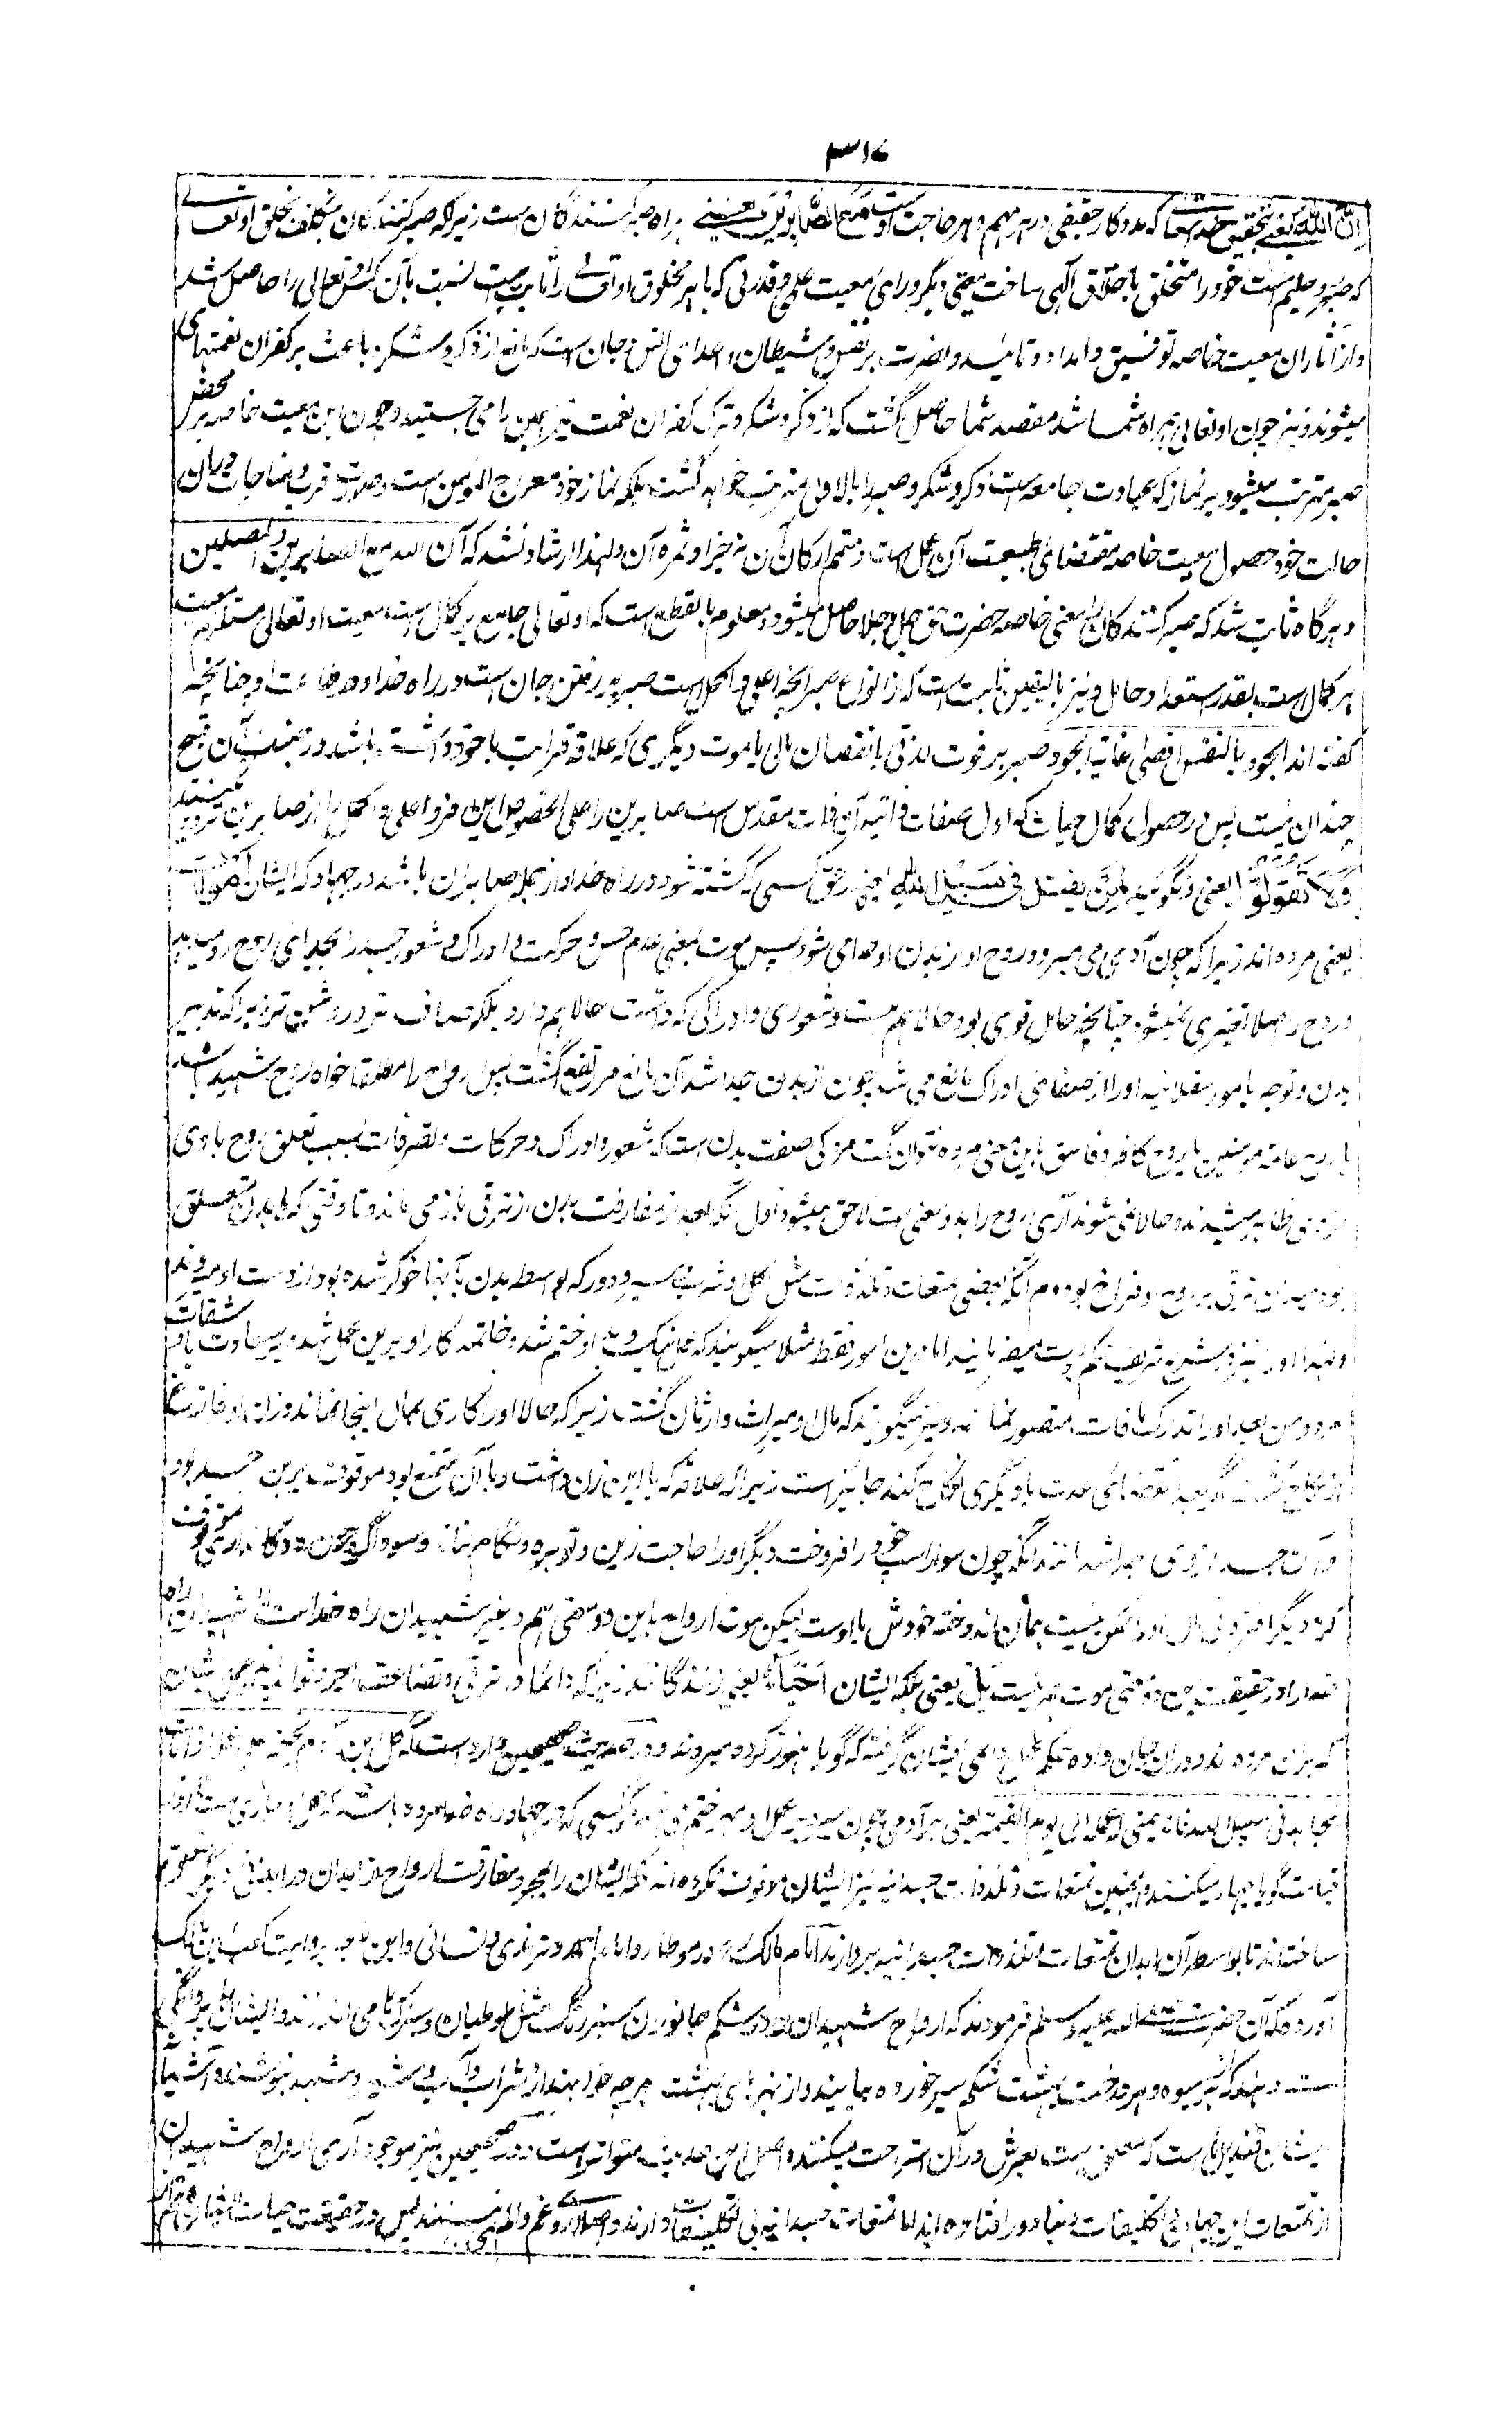 ۳۱۷
اِنَّ اللّٰهَ یعنی بتحقیق خدایتعالی که مددکار حقیقی در هر مهم و هر حاجت اوست مَعَ الصّٰبِرِیْنَ یعنی همراه صبر کنندگان است زیرا که صبر کنندگان بتکلف بخلق اوتعالی
که صبور و حلیم است خود را متخلق باخلاق الهی ساخت معیتی دیگر ورای معیت علمی و قدرتی که با هر مخلوق اوتعالی را ثابت است نسبت بآن کس اوتعالی را حاصل شد
و از آثار آن معیت خاصه توفیق و امداد و تائید و نصرت بر نفس و شیطان و اعدای انس و جان است که مانع از ذکر و شکر و باعث بر کفران نعمتهای
میشوند و نیز چون اوتعالی همراه شما شد مقصد شما حاصل گشت که از ذکر و شکر و ترک کفران نعمت نیز همین را می جستید و چون این معیت خاصه بر محض
صبر مترتب میشود بر نماز که عبادت جامعه است ذکر و شکر و صبر را بالاولی مترتب خواهد گشت بلکه نماز خود معراج المؤمن است و صورت قرب و مناجات در آن
حالت خود حصول معیت خاصه مقتضای طبیعت آن عمل است و متمم ارکان آن نه جزا و ثمره آن و لهذا ارشاد نشد که ان الله مع الصابرین و المصلین
و هرگاه ثابت شد که صبر کنندگان را معیتی خاصه حضرت حق جل و علا حاصل میشود و معلوم بالقطع است که اوتعالی جامع هر کمال است معیت اوتعالی مستلزم معیت
هر کمال است بقدر استعداد حامل و نیز بالیقین ثابت است که از انواع صبر آنچه اعلی و اکمل است صبر بر رفتن جان است در راه خدا و در طاعت او چنانچه
گفته اند الجود بالنفس اقصی غایة الجود و صبر بر فوت لذتی یا نقصان مالی یا موت دیگری که علاقه قرابت با خود داشته باشد در جنب آن قبیح
چندان نیست پس در حصول کمال حیات که اول صفات ذاتیه آن ذات مقدس است صابرین را علی الخصوص این فرد اعلی و اکمل را از صابرین
وَ لَا تَقُوْلُوْا یعنی و نگوئید لِمَنْ یُّقْتَلُ فِیْ سَبِیْلِ اللّٰهِ یعنی در حق کسی که کشته شود در راه خدا و از جمله صابران باشد در جهاد که ایشان اَمْوَاتٌ
یعنی مرده اند زیرا که چون آدمی می میرد و روح او از بدن او جدا می شود پس موت بمعنی عدم حس و حرکت و ادراک و شعور جسد را بجدای روح رو میدهد
و روح را اصلا تغیری نمیشود چنانچه حامل قوی بود حالا هم هست و شعوری و ادراکی که داشت حالا هم دارد بلکه صاف تر و روشن تر زیرا که تدبیر
بدن و توجه بامور سفلانیه او را از صفائی ادراک مانع می شد چون از بدن جدا شد آن مانع مرتفع گشت پس روح را مطلقا خواه روح شهید باشد
یا روح عامه مومنین یا روح کافر و فاسق باین معنی مرده نتوان گفت مردگی صفت بدن است که شعور و ادراک و حرکات و تصرفات بسبب تعلق روح با وی
از وی ظاهر میشدند و حالا نمی شوند آری روح را بدو معنی موت لاحق میشود اول آنکه بعد از مفارقت بدن از ترقی باز می ماند و تا وقتی که با بدن متعلق
بود میدان ترقی بر روح او فراخ بود دوم آنکه بعضی تمتعات و تلذذات مثل اکل و شرب و سیر و دور که بواسطه بدن بآنها خوگر شده بود از دست او میروند
و لهذا او را نیز در شرع شریف حکم موت میفرمایند اما درین امور فقط مثلا میگویند که عمل نیک و بد او ختم شد و خاتمه کار او برین عمل شد
او را تدارک مافات متصور نماند و نیز میگویند که مال او میراث وارثان گشت زیرا که حالا او را کاری بمال اینجا نماند و زن او
بعد انقضای عدت با دیگری نکاح کند جائز است زیرا که علاقه که با این زن داشت و باآن متمتع بود موقوف برین جسد بود
جسد از وی جدا شد مانند آنکه چون سوار اسپ خود را فروخت دیگر او را حاجت زین و توبره و لگام نماند و سوداگر چون دوکانداری موقوف
کرد دیگر لیکن موت ارواح باین دو معنی هم در غیر شهیدان راه خداست شهیدان راه
خدا را در حقیقت این دو معنی موت هم نیست بَلْ یعنی بلکه ایشان اَحْیَآءٌ یعنی زندگانند زیرا که دائما در ترقی
که برای مرده گویا هنوز نکرده میروند و در حدیث صحیحین وارد است که کل ابن آدم یختم علی عمله اذا مات
الی یوم القیمة یعنی هر آدمی چون میمیرد بر عمل او مهر ختم میزنند مگر کسی که در جهاد و راه خدا مرده باشد که عمل او جاری است تا روز
قیامت گویا جهاد میکنند و همچنین تمتعات و تلذذات جسدانیه نیز ایشان موقوف نکرده اند بلکه ایشان را بمجرد مفارقت ارواح از ابدان در ابدانی دیگر
ساخته اند تا بواسطه آن ابدان تمتعات و تلذذات جسدانیه بردارند امام مالک در موطا و امام احمد و ترمذی و نسائی و ابن ماجه بروایت کعب بن مالک
آورده که آن حضرت صلی الله علیه وسلم فرمودند که ارواح شهیدان در شکم جانوران سبز رنگ مثل طوطیان
که هر میوه و هر درخت بهشت شکم سیر خورده بیایند و از نهرهای بهشت هر چه خواهند از شراب و آب و شیر و شهد بنوشند و آشیانه
ایشان قندیلهاست که معلق است بعرش در آن استراحت میکنند و اصل این حدیث متواتر است و در صحیحین نیز موجود آری ارواح شهیدان
از تمتعات این جهان و تکلیفات دنیا دور افتاده اند اما تمتعات جسدانیه بی تکلیفات دارند و اصلا دردی و غم و الم نمی بینند پس در حقیقت حیات